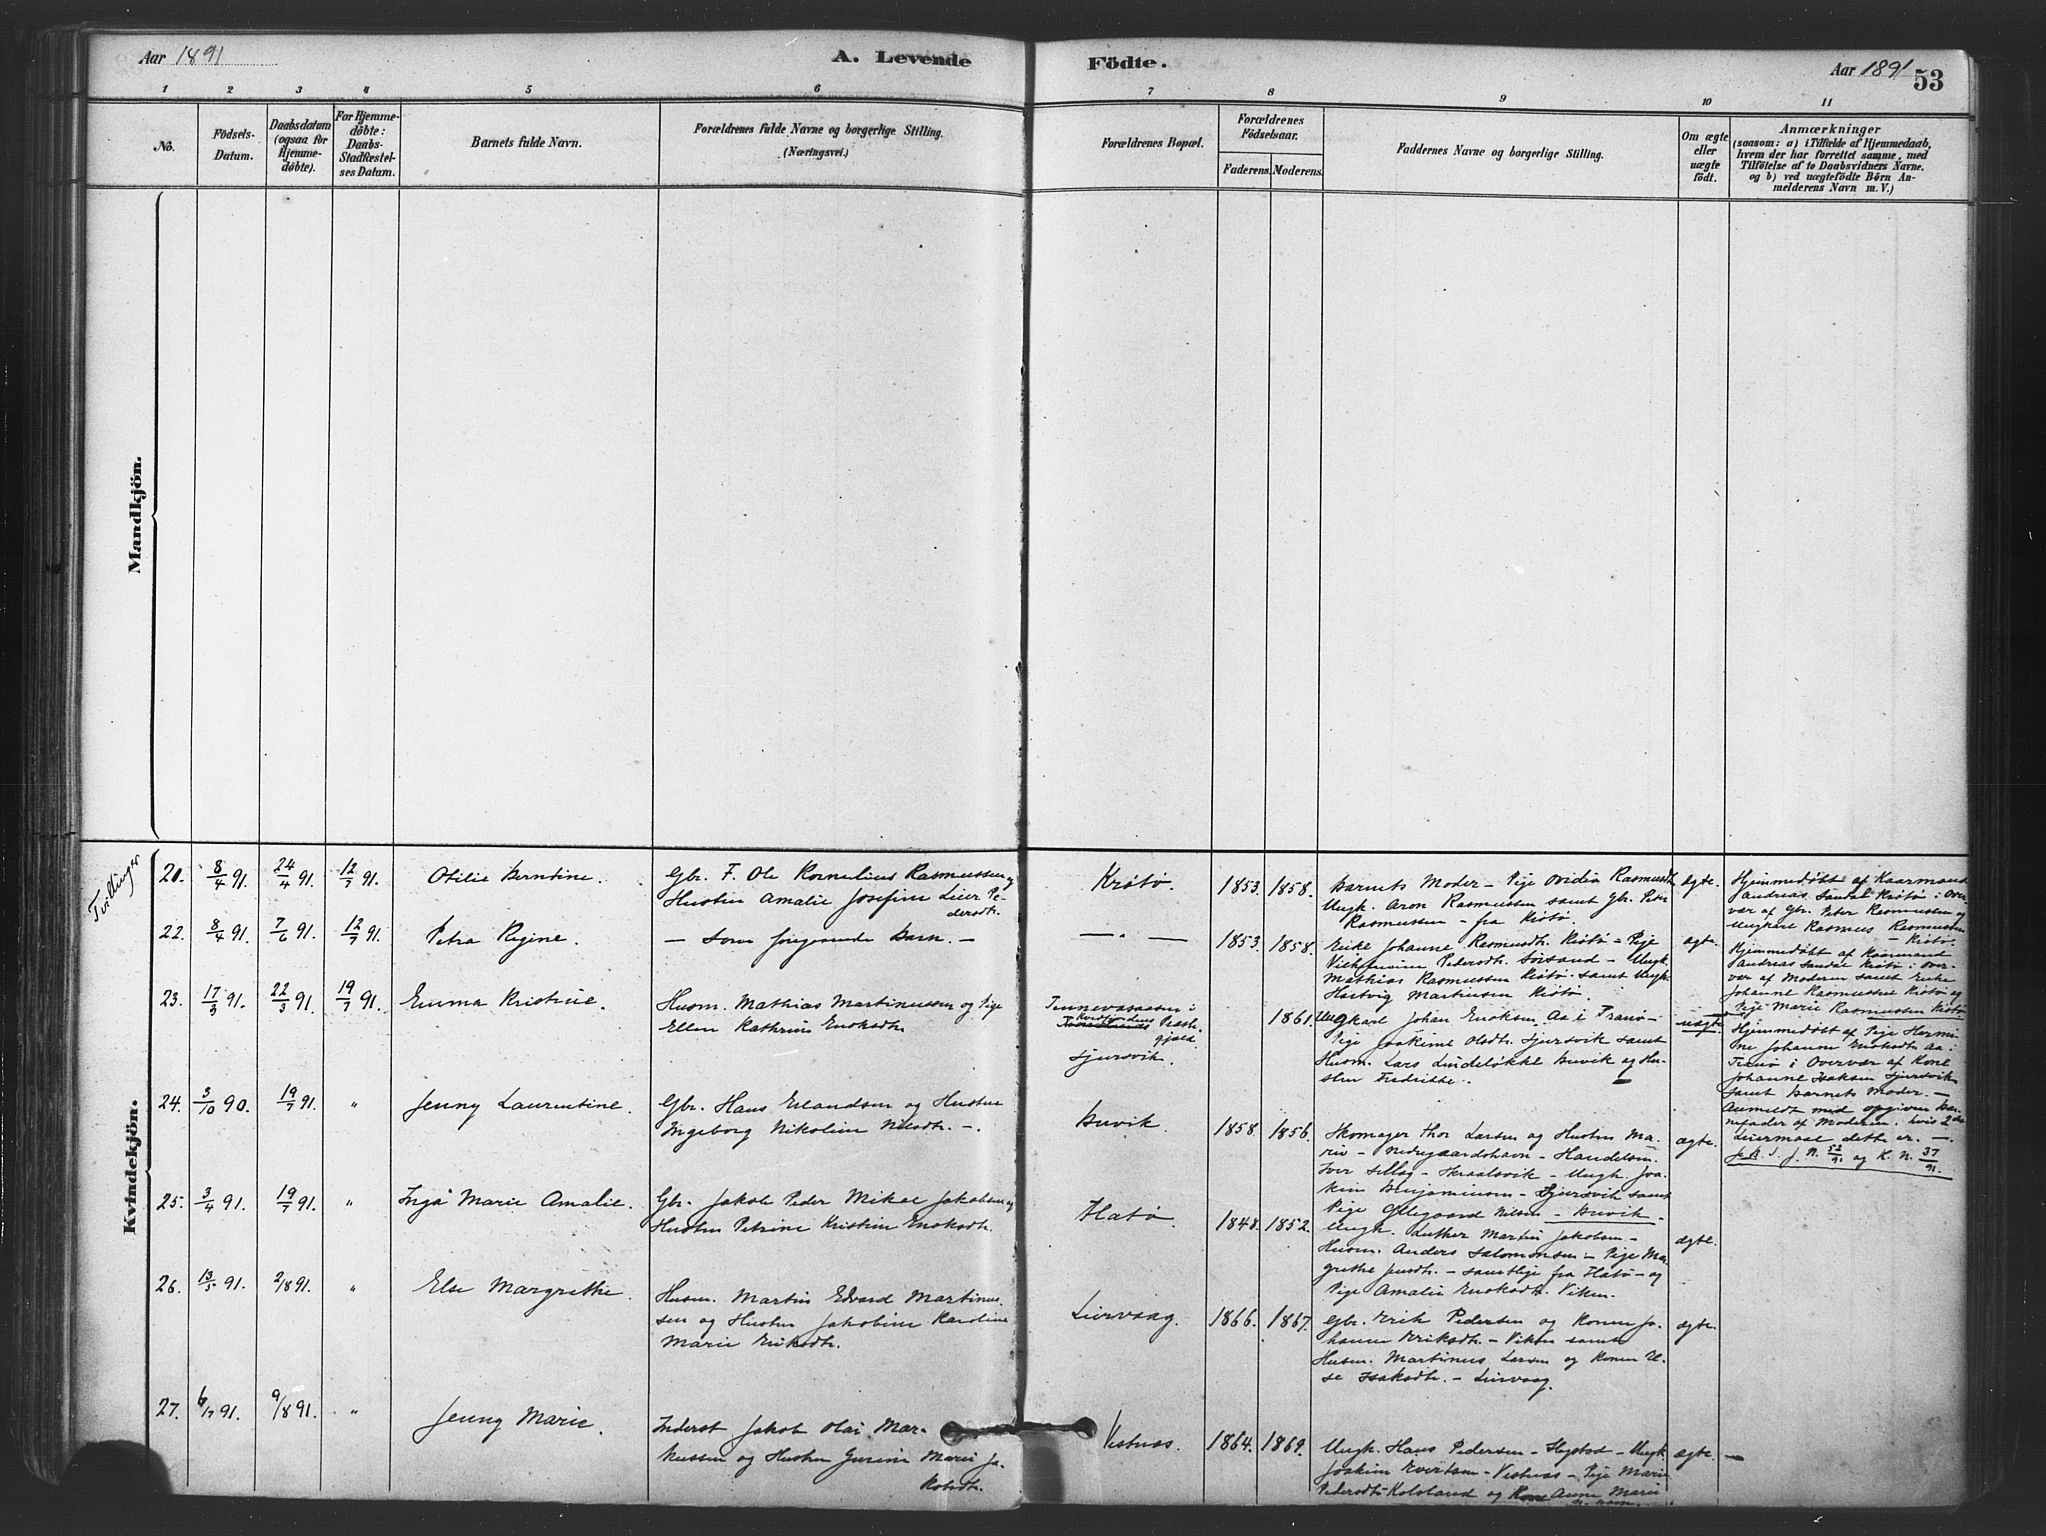 Aar 1891
A. Levende
Födte.
Aar 1891
53
1 2 3 4 5 6 7 8 9 10 11
No.
Födsels-
Datum.
Daabsdatum
(ogsaa for
Hjemme-
döbte).
For Hjemme-
döbte:
Daabs-
Stadfæstel-
ses Datum.
Barnets fulde Navn.
Forældrenes fulde Navne og borgerlige Stilling.
(Næringsvei.)
Forældrenes Bopæl.
Forældrenes
Födselsaar.
Faderens. Moderens.
Faddernes Navne og borgerlige Stilling.
Om ægte
eller
uægte
født.
Anmærkninger
(saasom: a) i Tilfælde af Hjemmedaab,
hvem der har forrettet samme, med
Tilföielse af to Daabsvidners Navne.
og b) ved uægtefödte Börn An-
melderens Navn m. V.)
Mandkjön.
Kvindekjön.
Tvillinger
21. 8/4 91. 24/4 91. 12/7 91. Otilie Berntine.
Gbr. F. Ole Kornelius Rasmussen og
Hustru Amalie Josefine Leier Pe-
dersdtr.
Krøtø. 1853. 1858.
Barnets Moder - Pige Ovidia Rasmusdtr.
Ungk. Aron Rasmussen samt Gbr. Peter
Rasmussen - fra Krøtø.
ægte.
Hjemmedøbt af Kaarmand
Andreas Sandal Krøtø i Over-
vær af Gbr. Peter Rasmussen og
Ungkarl Rasmus Rasmussen
- Krøtø.
22. 8/4 91. 7/6 91. 12/7 91. Petra Regine.
- Som foregaaende Barn. -
- " - 1853. 1858.
Enke Johanne Rasmusdtr. Krøtø - Pige
Vilhelmine Pedersdtr. Sørsand - Ungk.
Mathias Rasmussen Krøtø samt Ungk.
Hartvig Martinsen Krøtø.
ægte.
Hjemmedøbt af Kaarmand
Andreas Sandal Krøtø i Over-
vær af Moderen samt Enke
Johanne Rasmussen Krøtø og
Pige Marie Rasmussen Krøtø
23. 17/3 91. 22/3 91. 19/7 91. Emma Kristine.
Husm. Mathias Martinussen og Pige
Ellen Kathrine Enoksdtr.
Tennevassaasen i
Kvedfjordens Præste-
gjæld.
Sjursvik.
1861.
Ungkarl Johan Enoksen Aa i Tranø -
Pige Joakime Olsdtr. Sjursvik samt
Husm. Lars Lindeløkke Buvik og Hu-
stru Fredrikke.
uægte.
Hjemmedøbt af Pige Hermi-
ne Johanne Enoksdtr. Aa i
Tranø i Overvær af Kone
Johanne Isaksen Sjursvik
samt Barnets Moder. -
Anmeldt med opgiven Bar-
nefader af Moderen, hvis 2det
Leiermaal dette er. -
24. 3/10 90. 19/7 91. " Jenny Laurentine.
Gbr. Hans Erlandsen og Hustru
Ingeborg Nikoline Nilsdtr. -
Buvik. 1858. 1856.
Skomager Thor Larsen og Hustru Ma-
rie - Nedregaardshavn - Handelsm.
Iver Sillag - Skraalsvik - Ungk. Joa-
kim Benjaminsen - Sjursvik samt
Pige Ollegaard Nilsen - Buvik -
ægte.
25. 3/4 91. 19/7 91. " Inga Marie Amalie.
Gbr. Jakob Peder Mikal Jakobsen og
Hustru Petrine Kristine Enoksdtr.
Hatø. 1848. 1852.
Ungk. Luther Martin Jakobsen -
Husm. Anders Salomonsen - Pige Ma-
grethe Jensdtr. - samtlige fra Hatø - og
Pige Amalie Enoksdtr. Viken.
ægte.
26. 13/5 91. 2/8 91. " Else Margrethe.
Husm. Martin Edvard Martinus-
sen og Hustru Jakobine Karoline
Marie Eriksdtr.
Leirvaag. 1866. 1867.
Gbr. Erik Pedersen og Kone Jo-
hanne Eriksdtr. - Viken samt
Husm. Martinus Larsen og Kone El-
se Isaksdtr. - Leirvaag.
ægte.
27. 6/7 91. 9/8 91. " Jenny Marie.
Inderst Jakob Olai Mar-
kussen og Hustru Gurine Marie Ja-
kobsdtr.
Vestnæs. 1864. 1869.
Ungk. Hans Pedersen - - Ungk.
Joakim Evertsen - Vestnæs - Pige Marie
Pedersdtr. Kolsland og Anne Marie
ægte. -